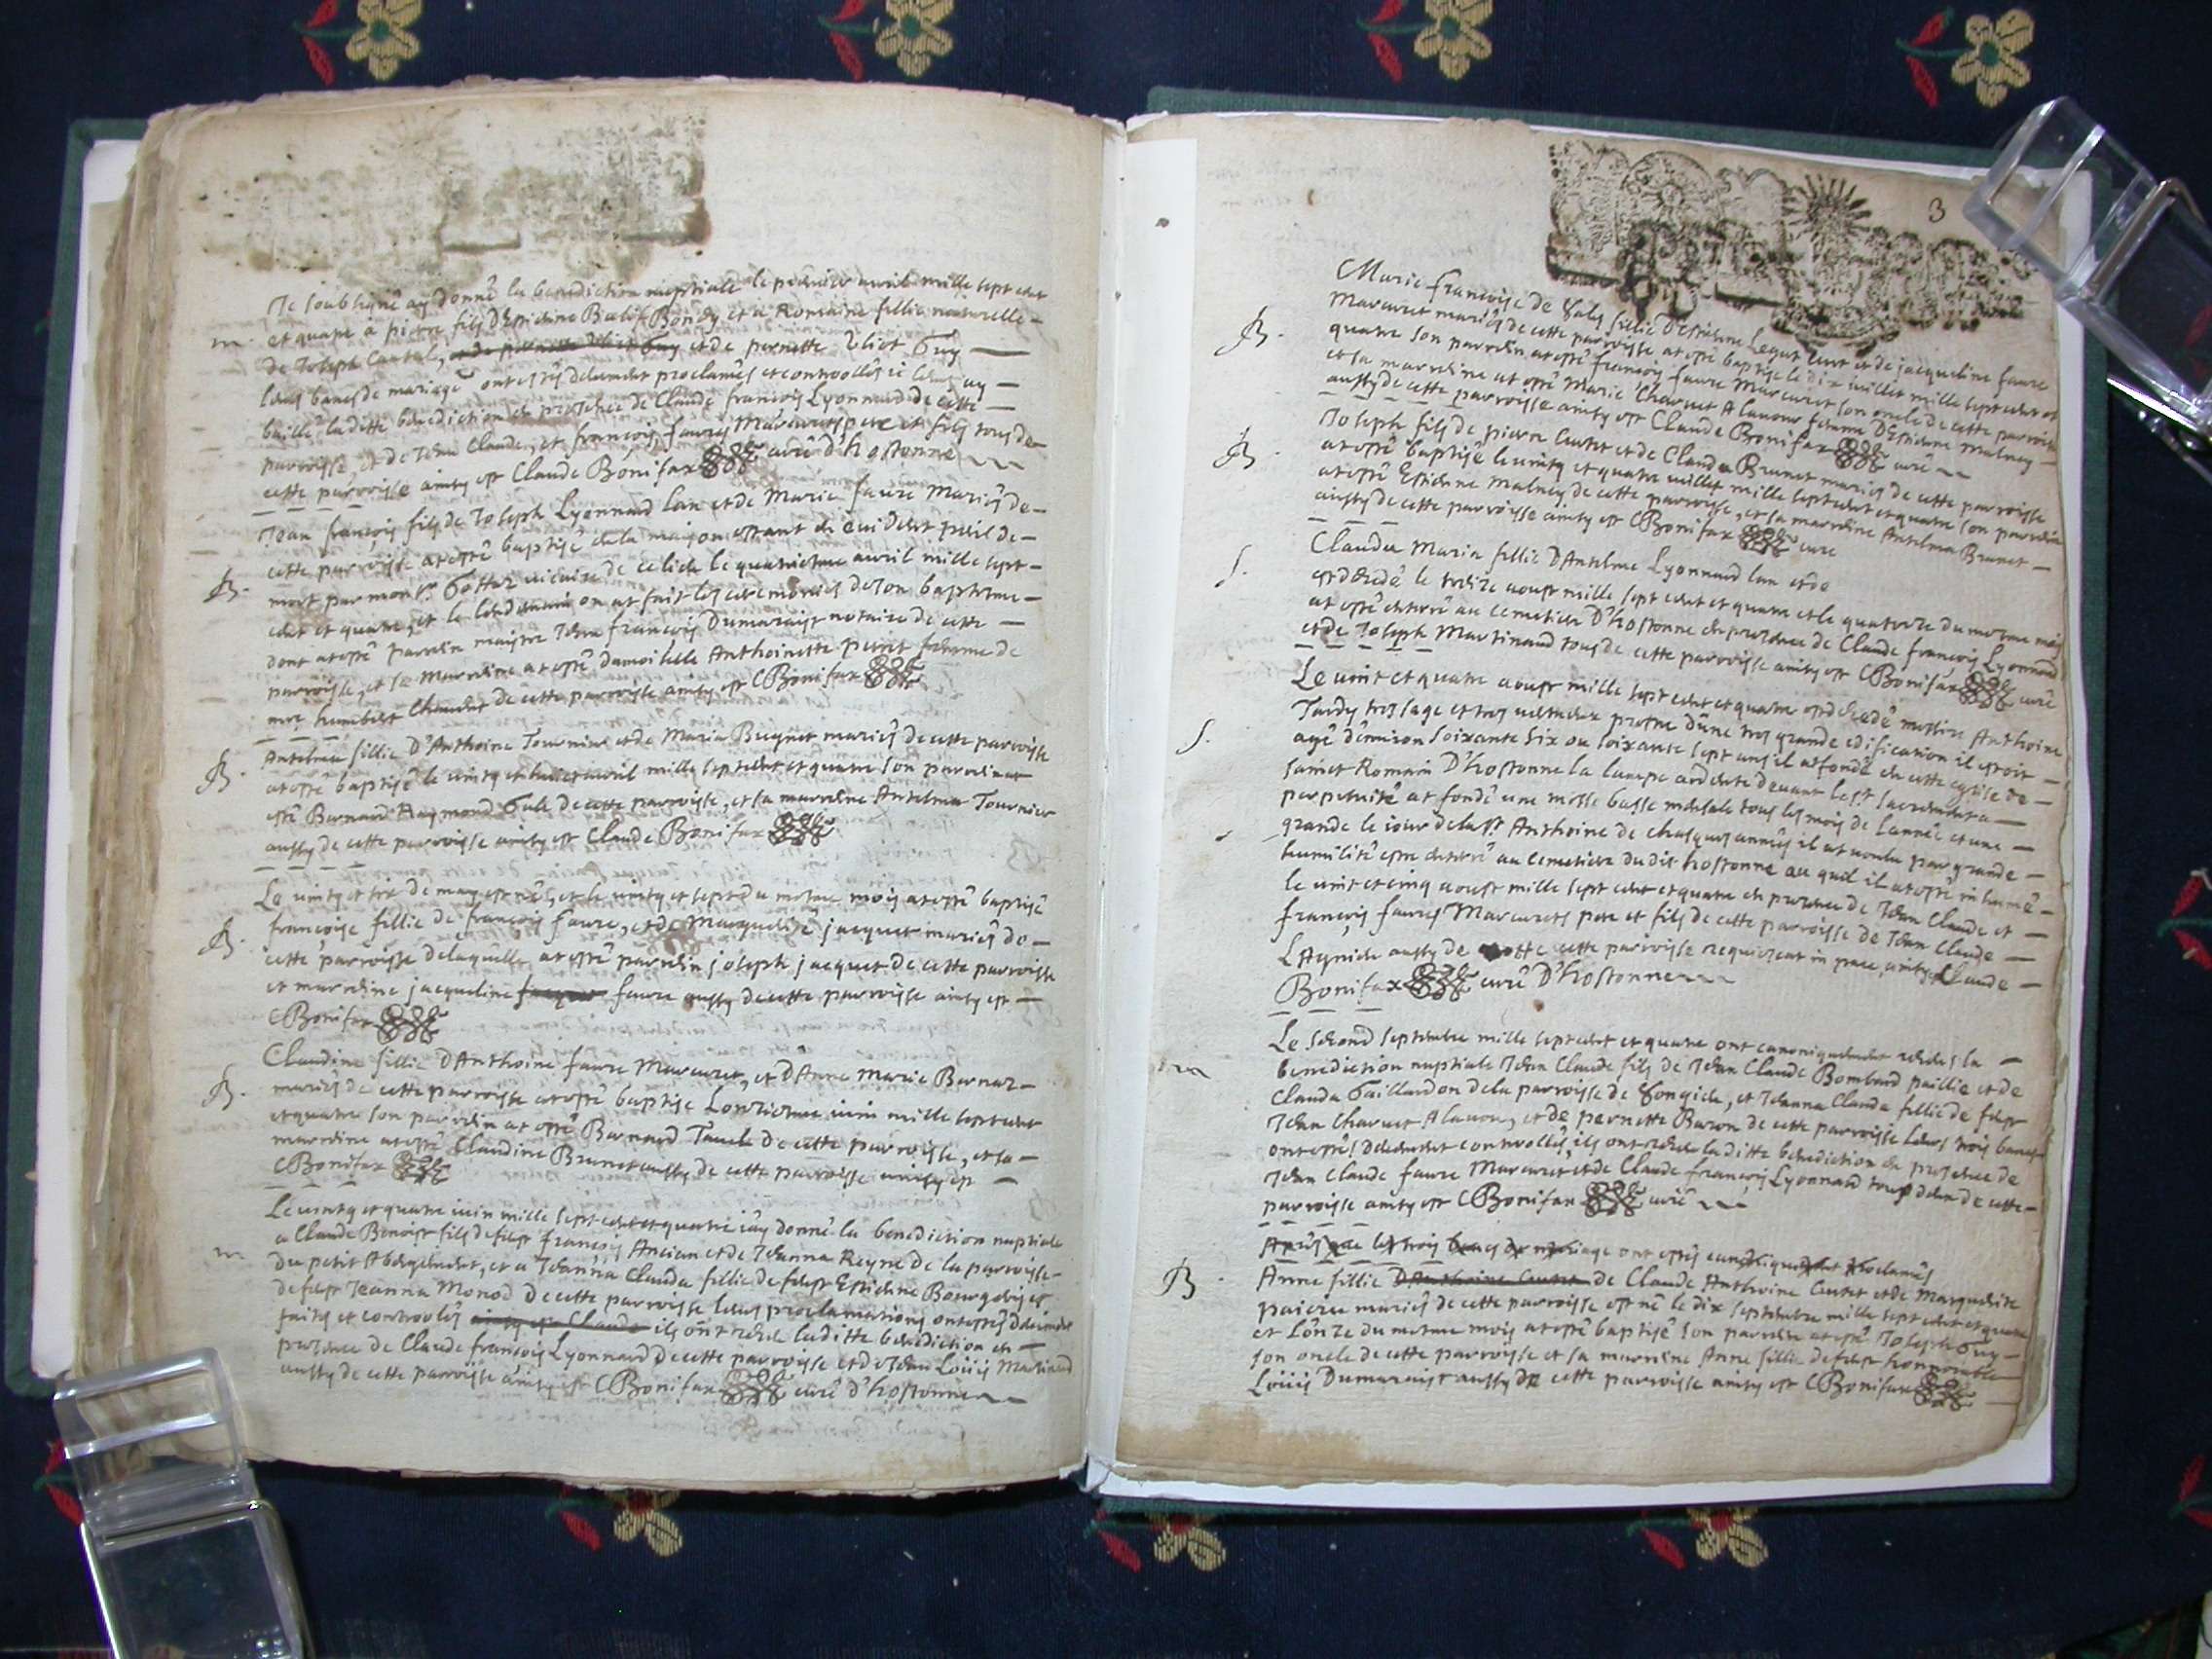 Je soubsigné ay donné la benediction nuptiale le premier avril mille sept cent
m. et quatre à pierre fils d'Estienne Bondy et a Romaine fillie naturelle
de Joseph Cantal, et de pernette Guy
leurs bancs de mariage ont estés deuement proclamés et controollés ie leur ay
baillé laditte benediction en presence de Claude françois Lyonnard de cette
parroisse, et de Jean Claude, et françois faures Marcurets pere et fils tous de
cette parroisse ainsy est Claude Bonifax curé d'hostonne
Jean françois fils de Joseph Lyonnard Lan et de Marie faure Mariés de
cette parroisse at esté baptisé dela maison estant en evident peril de
B. mort par mons.r Gottaz vicaire de ce lieu le quatriesme avril mille sept
cent et quatre, et le lendemain on at fait les ceremonies de son baptesme
dont at esté parrein maistre Jean françois Dumaraist notaire de cette
parroisse, et sa marreine at esté damoiselle Anthoinette perret femme de
mre humbert de cette parroisse ainsy est CBonifax
Antelma fillie D'Anthoine Tournier et de Maria Beynet mariés de cette parroisse
B. at esté baptisé le vinty et huict avril mille sept cent et quatre son parrein at
esté Bernard Raymond de cette parroisse, et sa marreine Antelma Tournier
aussy de cette parroisse ainsy est Claude Bonifax
Le vinty et six de may est né, et le vinty et sept du mesme mois at esté baptisé
B. françoise fillie de françois faure, et de Marguelise jacquet mariés de
cette parroisse de laquelle at esté parrein joseph jacquet de cette parroisse
et marreine jacqueline jacquet faure aussy de cette parroisse ainsy est
CBonifax
Claudine fillie d'Anthoine faure Marcuret, et d'Anne Marie Bernaz
B. mariés de cette parroisse at esté baptisé Lonziesme iuin mille sept cent
et quatre son parrein at esté Bernard de cette parroisse, et sa
marreine at esté Claudine Brunet aussy de cette parroisse ainsy est
CBonifax
Le vinty et quatre iuin mille sept cent et quatre iay donné la benediction nuptiale
a Claude Benoist fils de feust françois Ancian et de Jeanna Reyne de la parroisse
m. du petit Abergement, et a Jeanna Clauda fillie de feust Estienne Bourgeois et
de feust Jeanna Monod de cette parroisse leurs proclamations ont estés deuement
faits et controolés ainsy est Claude ils ont receu laditte benediction en
presence de Claude françois Lyonnard de cette parroisse et de Jean Loüis Martinand
aussy de cette parroisse ainsy est CBonifax curé d'hostonne
3
Marie françoise de fillie D'Estienne Leyat Curt et de jacqueline faure
B. Marcuret mariés de cette parroisse at esté baptisé le dix iuillet mille sept cent et
quatre son parrein at esté françois faure Marcuret son oncle de cette parroisse
et sa marreine at esté Marie Charvet Alavour femme D'Estienne Malney
aussy de cette parroisse ainsy est Claude Bonifax curé
Joseph fils de pierre Curtet et de Clauda Brunet mariés de cette parroisse
B. at esté baptisé le vinty et quatre iuillet mille sept cent et quatre son parrein
at esté Estienne Malney de cette parroisse, et sa marreine Antelma Brunet
aussy de cette parroisse ainsy est CBonifax curé
Clauda Maria fillie D'Antelme Lyonnard lan et de
S. est decedé le treize aoust mille sept cent et quatre et le quatorze du mesme mois
at esté enterré au cemetiere D'hostonne en presence de Claude françois Lyonnard
et de Joseph Martinand tous de cette parroisse ainsy est CBonifax curé
Le vint et quatre aoust mille sept cent et quatre est decedé messire Anthoine
Tardy tres sage et tres vertueux prestre d'une tres grande edification il estoit
S. agé d'environ soixante six ou soixante sept ans il at fondé en cette eglise de
sainct Romain D'hostonne la lampe ardente devant le st sacrement a
perpetuité at fondé une messe basse mensale tous les mois de lannée et une
grande le iour de la st Anthoine de chasques années il at voulu par grande
humilité estre enterré au cemetiere du dit hostonne au quel il at esté inhumé
le vint et cinq aoust mille sept cent et quatre en presence de Jean Claude et
françois faures Marcurets pere et fils de cette parroisse de Jean Claude
L'Aynide aussy de cette parroisse requiescat in pace ainsy est Claude
Bonifax curé D'hostonne
Le second septembre mille sept cent et quatre ont canoniquement receus la
m benediction nuptiale Jean Claude fils de Jean Claude Bombard paillie et de
Clauda Gaillardon dela parroisse de Songieu, et Jeanna Clauda fillie de feust
Jean Charvet Alavour, et de pernette Baron de cette parroisse leurs trois bancs
ont estés deuement controollés, ils ont receu laditte benediction en presence de
Jean Claude faure Marcuret, et de Claude françois Lyonnard tous deux de cette
parroisse ainsy est CBonifax curé
Apres que les trois bancs de mariage ont estés canoniquement proclamés
B. Anne fillie D'Anthoine Curtet de Claude Anthoine Curtet et de Marguerite
mariés de cette parroisse est né le dix septembre mille sept cent et quatre
et l'onze du mesme mois at esté baptisé son parrein at esté Joseph Guy
son oncle de cette parroisse et sa marreine Anne fillie de feust honnorable
Loüis Dumaraist aussy de cette parroisse ainsy est CBonifax